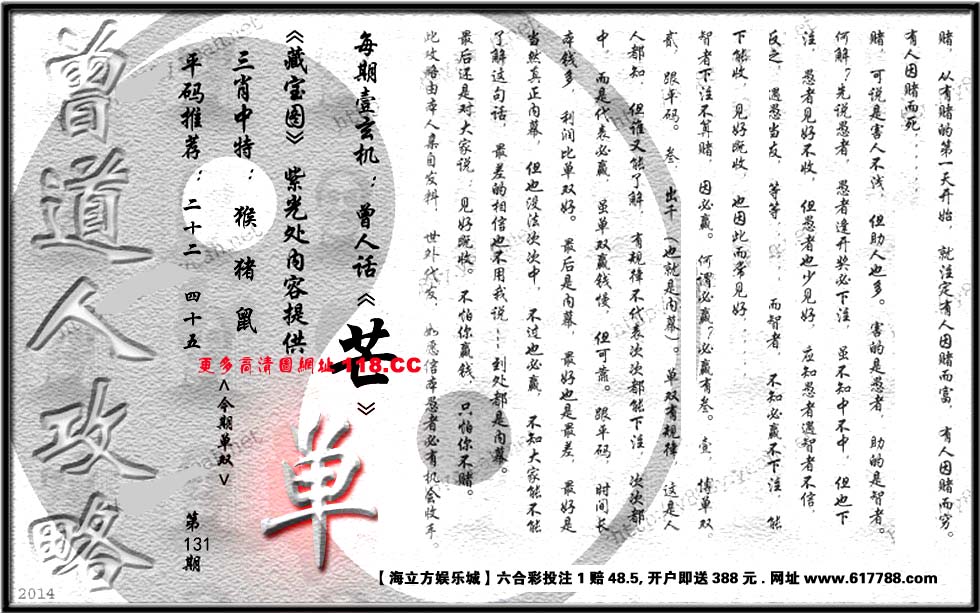 赌，从有赌的第一天开始，就注定有人因赌而富，有人因赌而穷。
有人因赌而死......
赌，可说是害人不浅，但助人也多。害的是愚者，助的是智者。
何解?先说愚者，愚者逢开奖必下注，虽不知中不中，但也下
注，愚者见好不收，但愚者也少见好，应知愚者遇智者不信，
反之，遇愚当友，等等......而智者，不知必赢不下注，能
下能收，见好既收，也因此而常见好......
智者下注不算赌，因必赢。何谓必赢?必赢有叁。壹，博单双。
贰，跟平码。叁，出千（也就是内幕）。单双有规律，这是人
人都知，但谁又能了解，有规律不代表次次都能下注，次次都
中，而是代表必赢，虽单双赢钱慢，但可靠。跟平码，时间长，
本钱多，利润比单双好。最后是内幕，最好也是最差，最好是
当然真正内幕，但也没法次次中，不过也必赢，不知大家能不能
了解这句话，最差的相信也不用我说......到处都是内幕。
最后还是对大家说：见好既收。不怕你赢钱，只怕你不赌。
此攻略由本人集自发料，世外代友，如愿信本愚者必有机会收年。
每期壹玄机：曾人话《芒》
《藏宝图》紫光处内容提供
三肖中特：猴 猪 鼠
平码推荐：二十二 四十五
更多高清圖網址 118.CC
<今期单双>
单
第131期
曾道人攻略
【海立方娱乐城】六合彩投注1赔48.5,开户即送388元.网址www.617788.com
2014